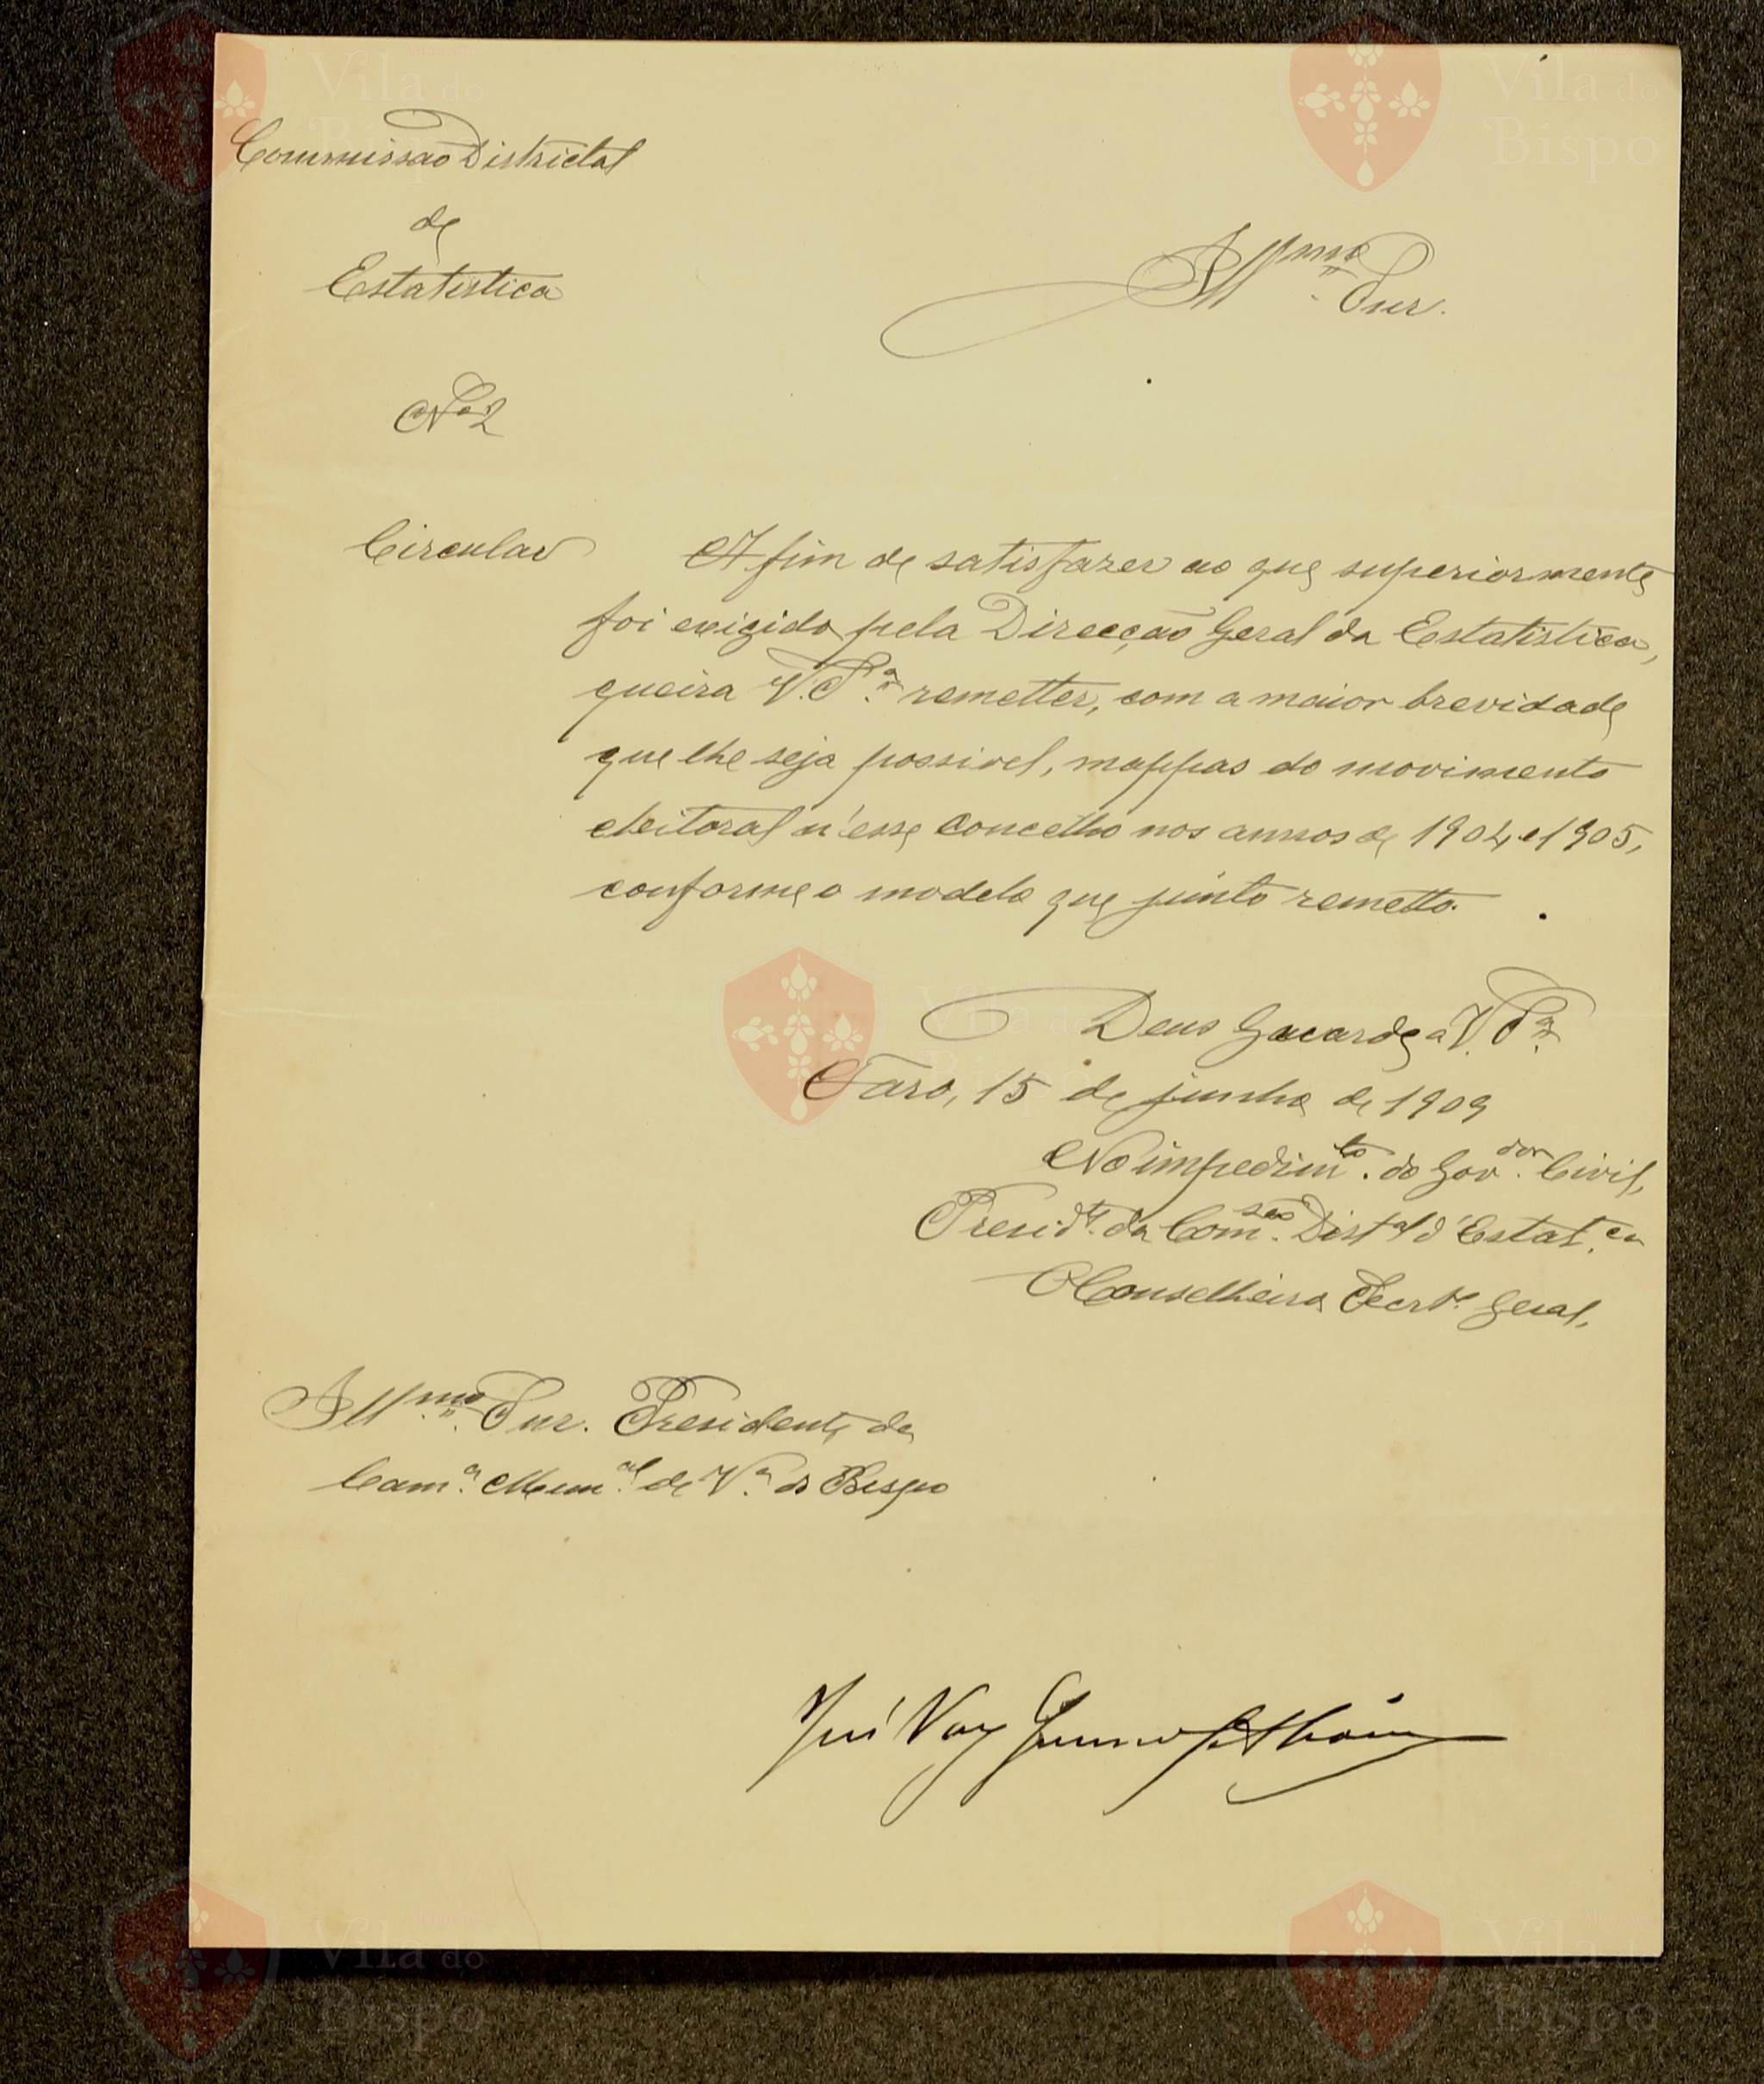 Commissão Districtal
de
Estatistica
Nº 2
Illmo Snr.
Circular
A fim de satisfazer ao que superiormente
foi exigido pela Direcção Geral da Estatistica,
queira V. Sª remetter, com a maior brevidade
que lhe seja possivel, mappas do movimento
eleitoral n'esse concelho nos annos de 1904 e 1905,
conforme o modelo que junto remetto.
Deus Guarde a V. Sª
Faro, 15 de junho de 1909
No impedimto. do Govdor. Civil,
Presidte. da Comssão. Distal d'Estat.ca
O Conselheiro Secrto. Geral,
Illmo. Snr. Presidente da
Camª. Munal. de Vª do Bispo
José Vaz
Vila do
Bispo
Vila do
Bispo
Vila do
Bispo
Vila do
Bispo
Vila do
Bispo